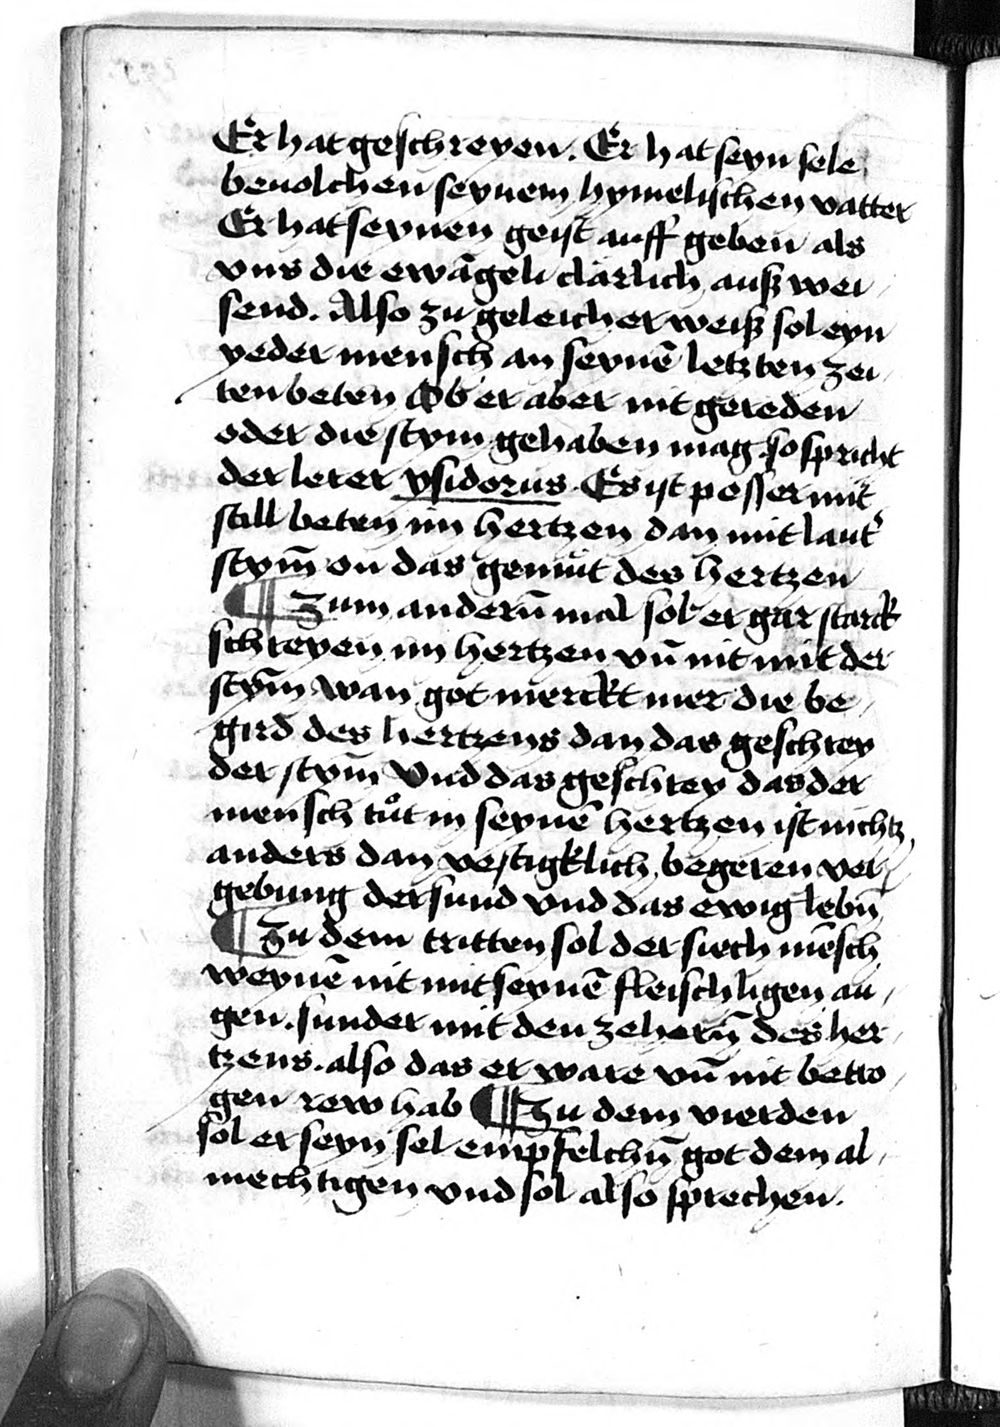 Er hat geschreyen. Er hat seyn sele
beuolchen seynem hymelischen vatter
Er hat seynen geist auff geben als
vns die ewāgeli clarlich außwei
send. Also zu geleicher weiß sol eyn
yeder mensch an seynē letzten zei
ten beten Ob er aber nit gereden
oder die stym gehaben mag. so spricht
der lerer ysidorus. Es ist pesser mit
still beten im hertzen dan mit laut͛
stym̄ on das gemüt des hertzen
¶ Zum andern̄ mal sol er gar starck
schreyen im hertzen vn̄ nit mit der
stym̄ wan got merckt mer die be
gird des hertzens dan das geschrey
der stym̄ Vnd das geschrey das der
mensch tuͦt in seynē hertzen ist nichtz
anders dan vestigklich begeren ver
gebung der sund vnd das ewig lebn̄
¶ Zu dem tritten sol der siech mēsch
weynē nit mit seynē fleischligen au
gen. sunder mit den zehern̄ des her
tzens. also das er ware vn̄ nit betro
gen rew hab ¶ Zu dem vierden
sol er seyn sel empfelchn̄ got dem al
mechtigen vnd sol also sprechen.